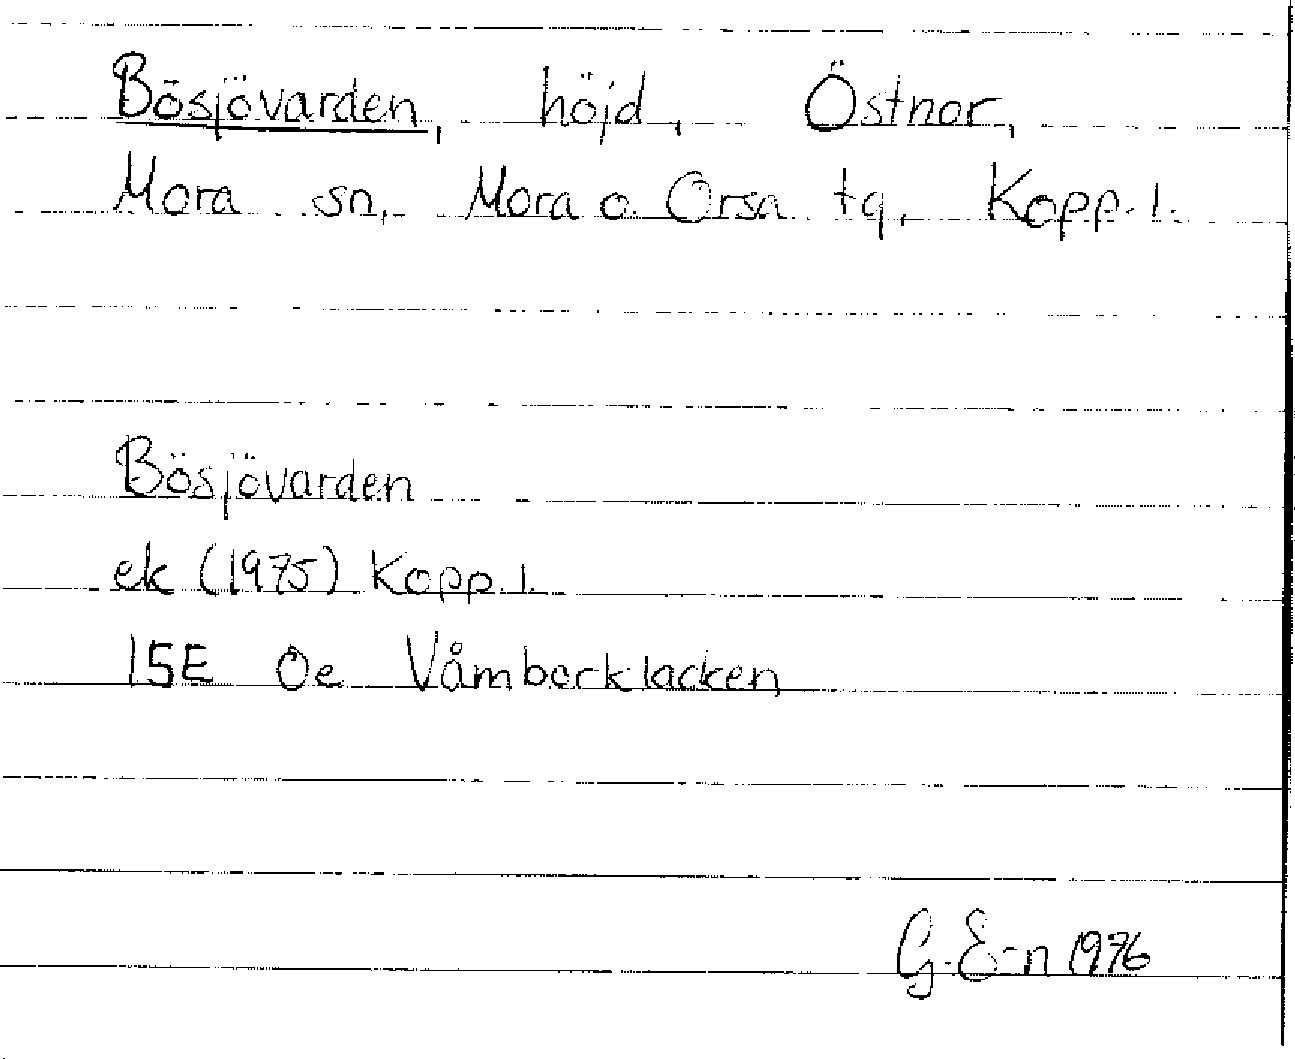 Bösjövarden, höjd, Östnor,
Mora sn, Mora o. Orsa tg, Kopp. l.
Bösjövarden
ek (1975) Kopp. l.
15E 0e Våmbocklacken
G. E-n 1976